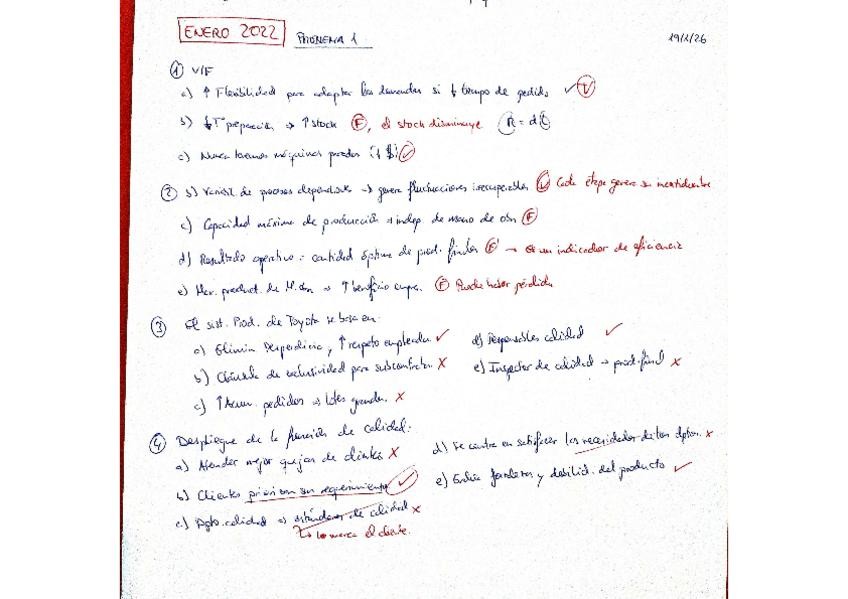 ENERO 2022 PROBLEMA 1 19/1/26
① V/F
a) ↑ Flexibilidad para adaptar las demandas si ↓ tiempo de pedido ✓ V
b) ↓ Tº preparación → ↑ stock F, el stock disminuye R = d·L
c) Nunca tenemos máquinas paradas (↓ $)
② b) Variab. de procesos dependientes → genera fluctuaciones irrecuperables V Cada etapa genera su incertidumbre
c) Capacidad máxima de producción → indep. de mano de obra F
d) Resultado operativo: cantidad óptima de prod. final F → Es un indicador de eficiencia
e) product. de M. obra → ↑ beneficio F Puede haber pérdida
③ El sist. Prod. de Toyota se basa en:
a) Elimin Desperdicio, ↑ respeto empleados ✓ d) Responsables calidad ✓
b) Cláusula de exclusividad para subcontratas X e) Inspector de calidad → prod. final X
c) ↑ Acum. pedidos → lotes grandes X
④ Despliegue de la función de calidad:
a) Atender mejor quejas de clientes X d) Se centra en satisfacer las necesidades de los dptos. X
b) Clientes priorizan sus requerimientos ✓ e) fortalezas y debilid. del producto ✓
c) Dpto. calidad → estándares de calidad X
↳ Lo marca el cliente.